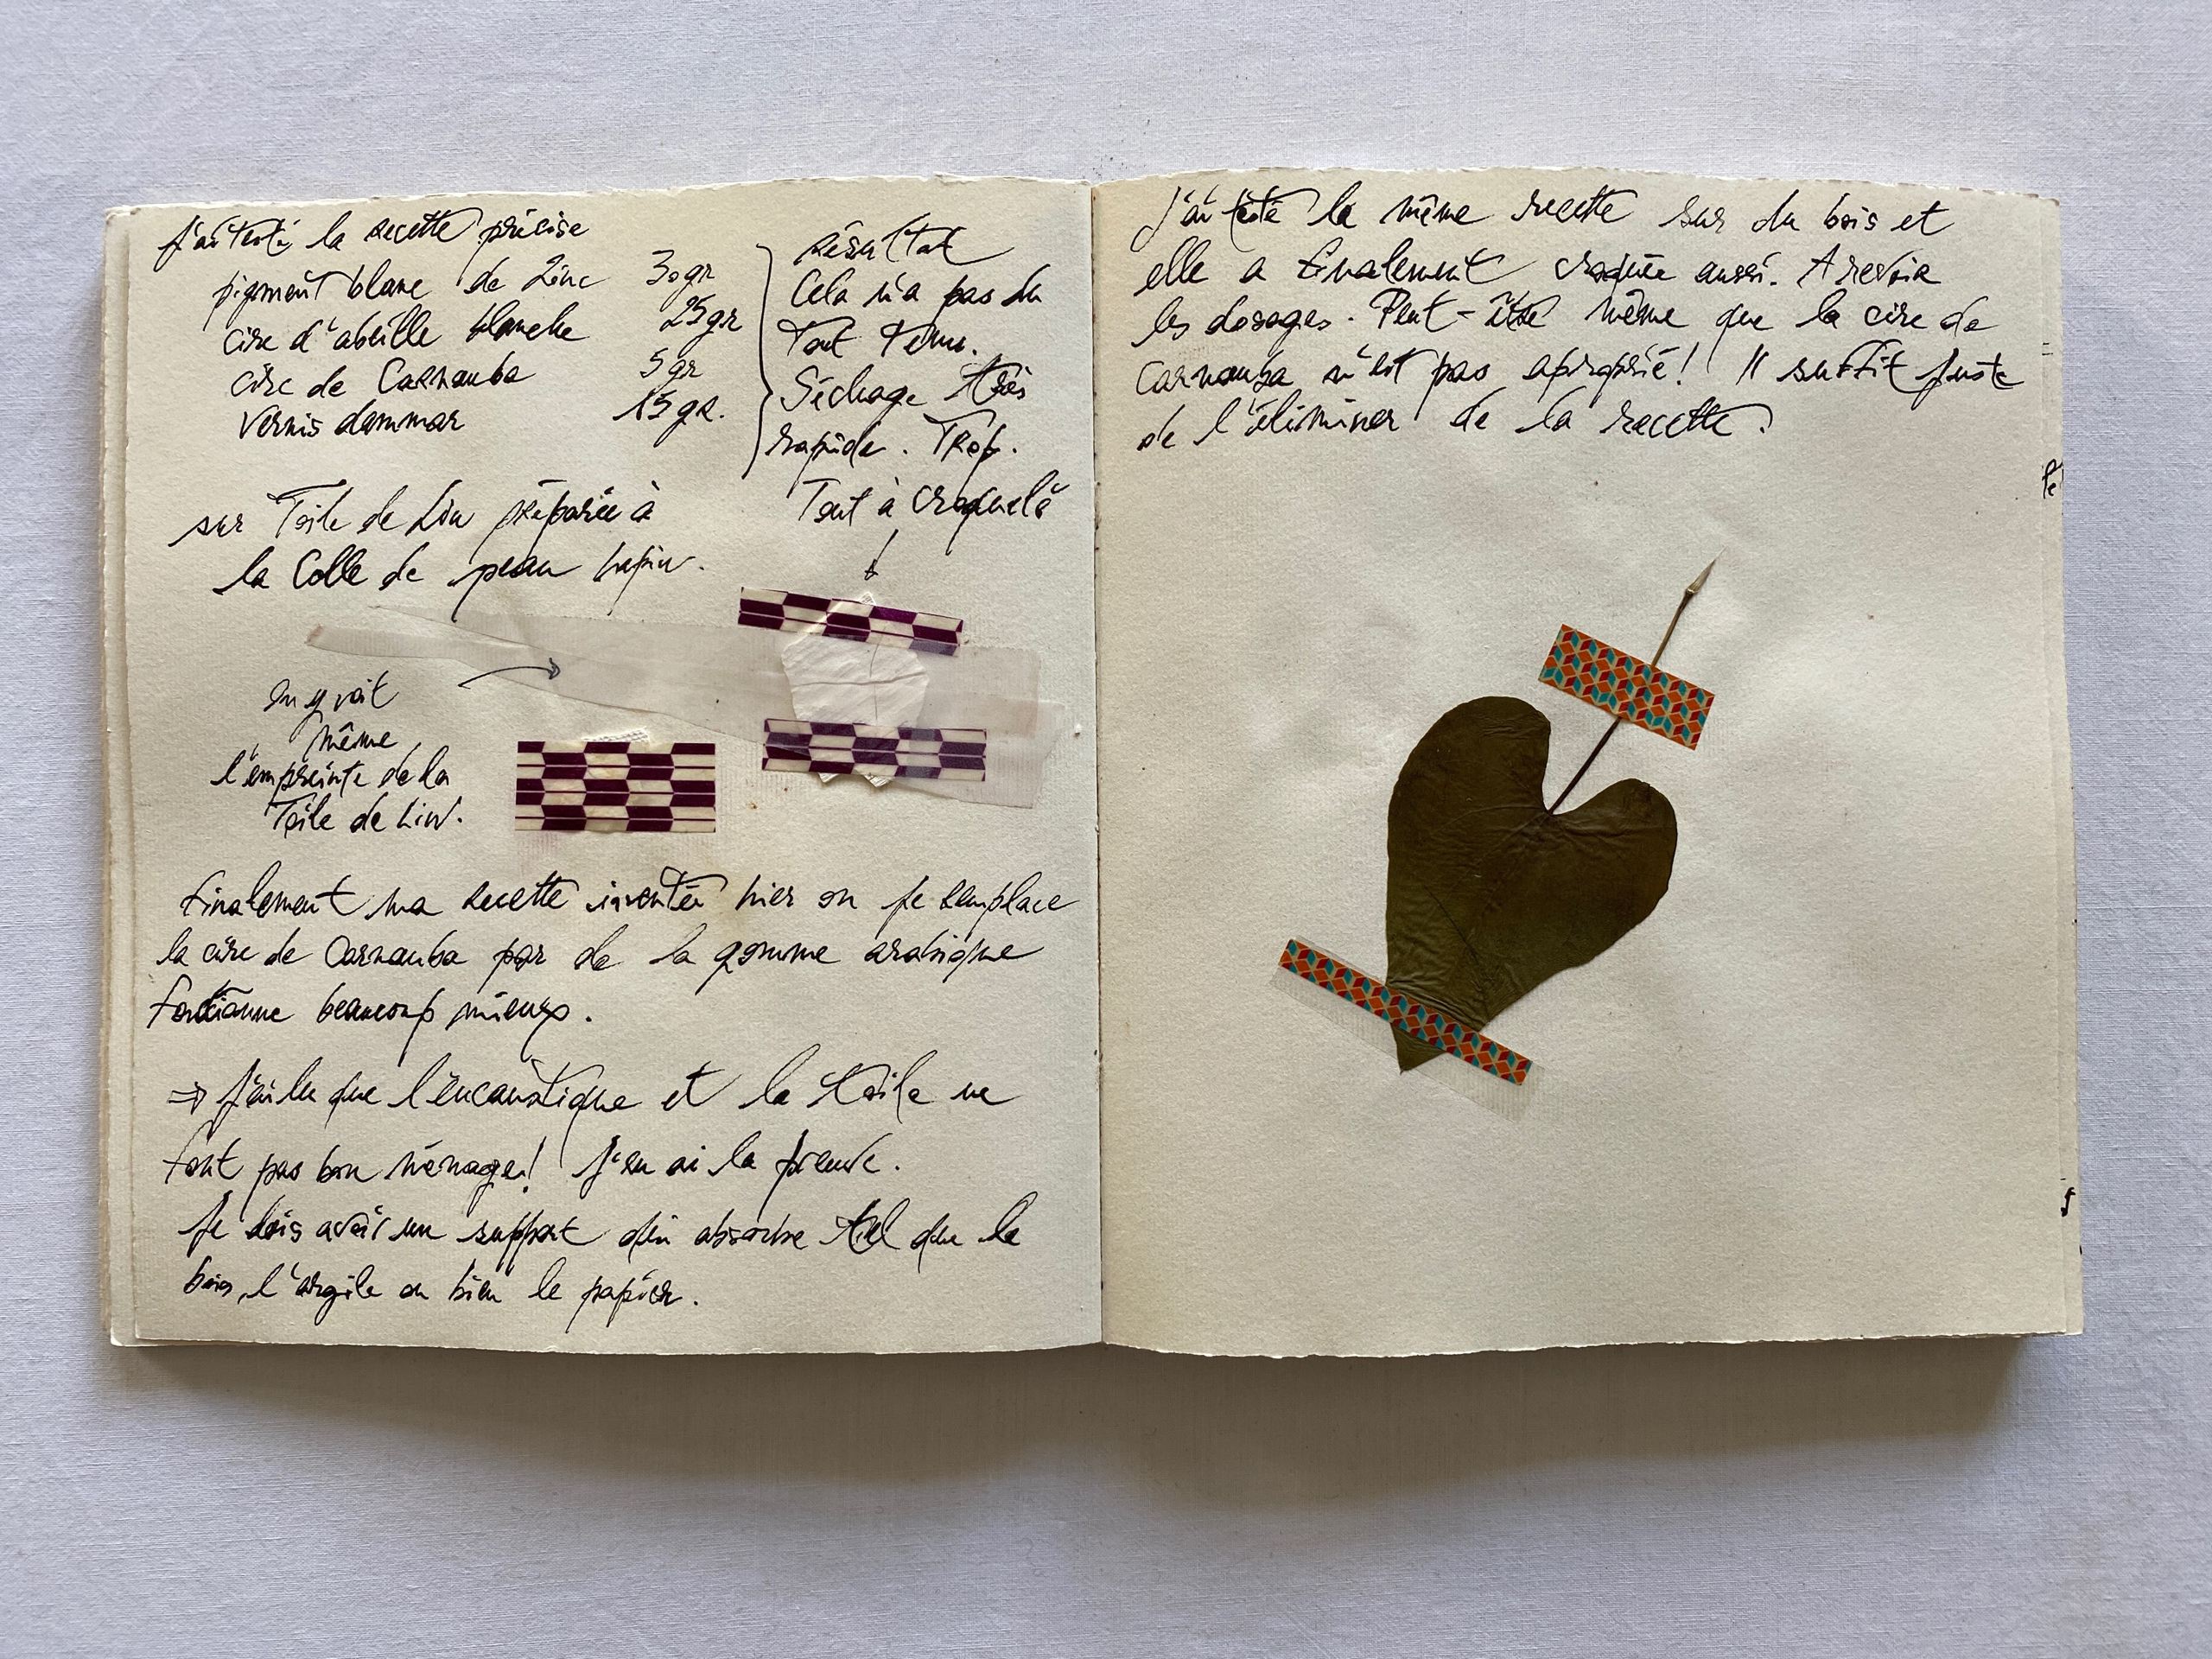 J'ai testé la recette précise
pigment blanc de Zinc 30gr
cire d'abeille blanche 25gr
cire de Carnauba 5gr
Vernis dammar 15gr.
résultat
Cela n'a pas du
Tout Tenu.
Séchage très
rapide. Trop.
Tout à craquelé
sur Toile de Lin préparée à
la Colle de peau lapin.
on y voit
même
l'empreinte de la
Toile de Lin.
finalement ma recette inventée hier on je remplace
la cire de Carnauba par de la gomme arabique
fonctionne beaucoup mieux.
⇒ J'ai lu que l'encaustique et la toile ne
font pas bon ménage! J'en ai la preuve.
Je dois avoir un support qui absorbe tel que le
bois, l'argile ou bien le papier.
J'ai testé la même recette sur du bois et
elle a finalement craquée aussi. A revoir
les dosages. Peut-être même que la cire de
carnauba n'est pas aproprié! Il suffit juste
de l'éliminer de la recette?